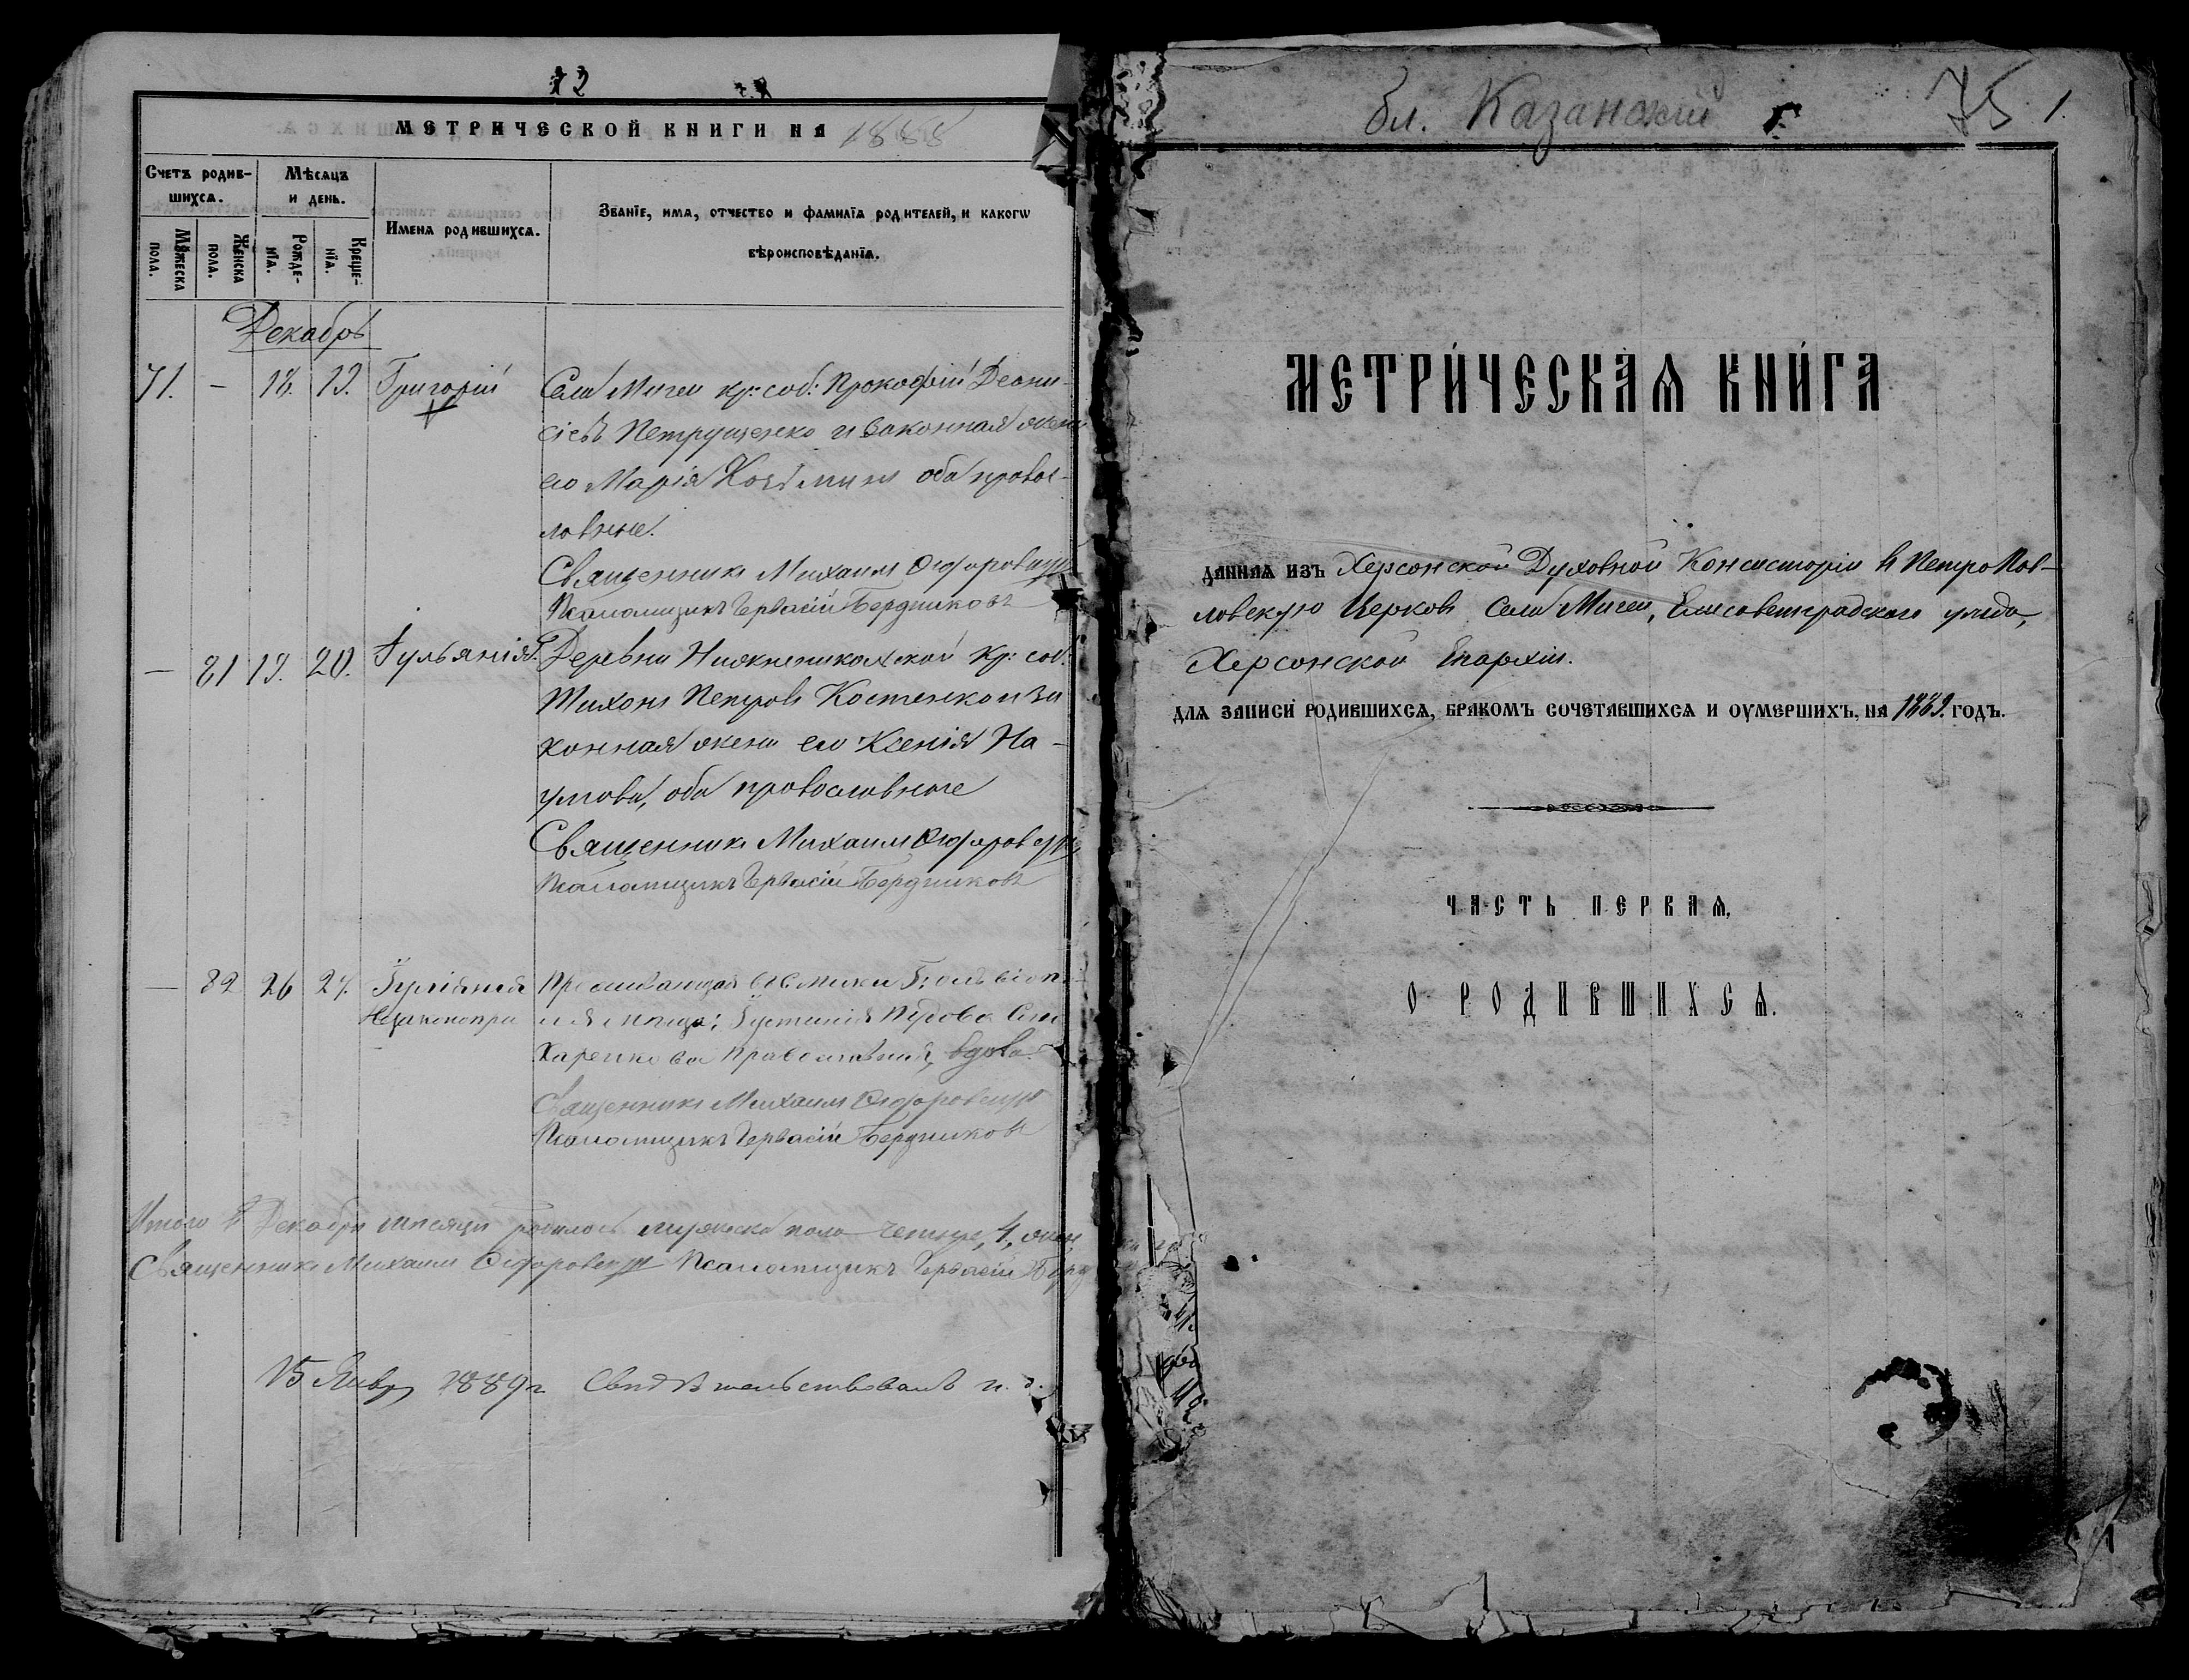 12
МЕТРИЧЕСКОЙ КНИГИ НА 1888
Счетъ родив-
шихся.
Мѣсяцъ
и день.
Имена родившихся.
Званіе, имя, отчество и фамилія родителей, и какогω
вѣроисповѣданія.
Мꙋжеска
пола.
Женска
пола.
Рожде-
нія.
Креще-
нія.
Декабрь
71. — 18. 19. Григорій Села Мигеи кр: соб: Прокофій Деони-
сіевъ Петрущенко и законная жена
его Марія Козьмина оба правос-
лавные.
Священникъ Михаилъ
Псаломщикъ Гервасій Бердниковъ
— 81 19. 20. Іульянія Деревни Нижненикольской кр: соб:
Тихонъ Петровъ Костенко и за
конная жена его Ксенія На-
умова, оба православные
Священникъ Михаилъ
Псаломщикъ Гервасій Бердниковъ
— 82 26 27. Іуліянія
Незаконопри
Іустинія
Харенкова православная, вдова.
Священникъ Михаилъ
Псаломщикъ Гервасій Бердниковъ
Итого въ Декабрѣ мѣсяцѣ родилось мужеска пола четыре, 4, жен
Священникъ Михаилъ Псаломщикъ Гервасій Берд
15 Янвр 1889 г Свидѣтельствовалъ и. д.
бл. Казанскій 75 1.
МЕТРИ́ЧЕСКАѦ КНИ́ГА
ДАННАЯ ИЗЪ Херсонской Духовной Консисторіи въ ПетроПав-
ловскую Церковь Села Мигеи, Елисаветградскаго уѣзда,
Херсонской Епархіи.
ДЛЯ ЗАПИСИ РОДИВШИХСЯ, БРАКОМЪ СОЧЕТАВШИХСЯ И ОУМЕРШИХЪ, НА 1889. ГОДЪ.
ЧАСТЬ ПЕРВАѦ,
О РОДИВШИХСѦ.